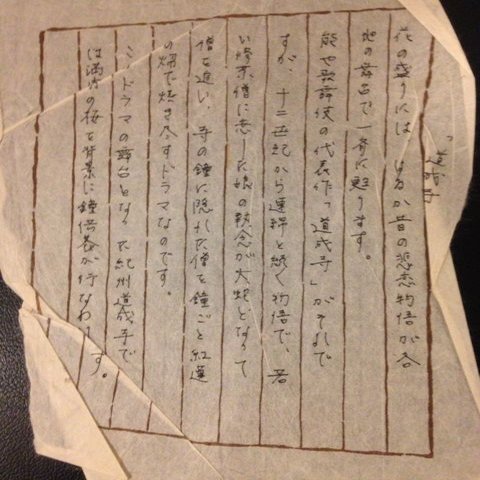 「道成寺」
花の盛りには はるか昔の悲恋物語が各
地の舞台で一斉に甦ります。
能や歌舞伎の代表作「道成寺」がそれで
すが 十二世紀から連綿と続く物語で、若
い修業僧に恋した娘の執念が大蛇となって
僧を追い 寺の鐘に隠れた僧を鐘ごと紅蓮
の焔で焼き尽すドラマなのです。
ドラマの舞台となった紀州道成寺で
は満開の桜を背景に鐘供養が行なわ
す。